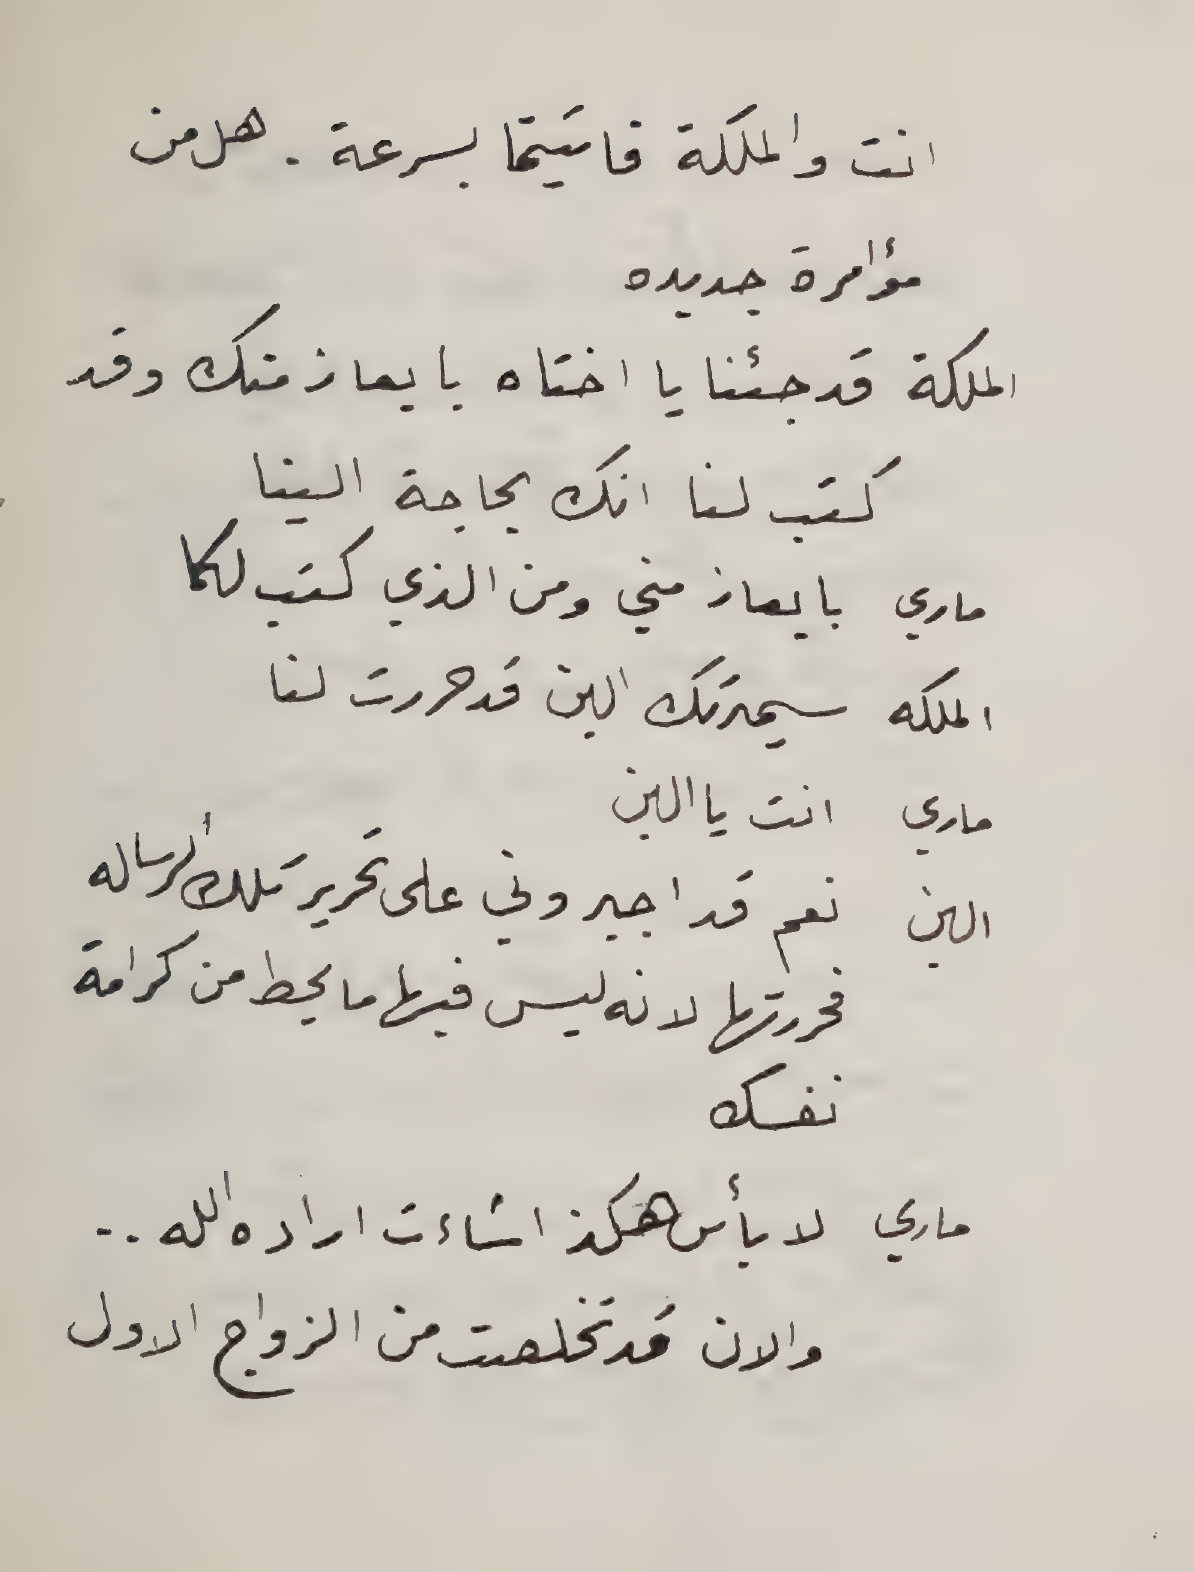 انت والملكة فاتيتما بسرعة . هل من
مؤامرة جديده
الملكة قد جئنا يا اختاه بايعاز منك وقد
كتب لنا انك بحاجة الينا
ماري بايعاز مني ومن الذي كتب لكما
الملكه سيمرتك الين قد حررت لنا
ماري انت يا الين
الين نعم قد اجبروني على تحرير تلك الرساله
فحررتها لانه ليس فيها ما يحط من كرامة
نفسك
ماري لا بأس هكذا شاءت اراده الله ..
والان قد تخلصت من الزواج الاول